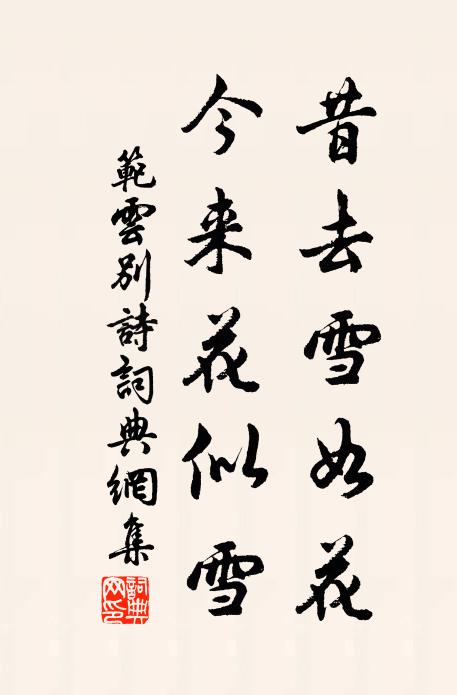 昔去雪如花
今来花似雪
範雲别詩詞典網集
詞典
网印